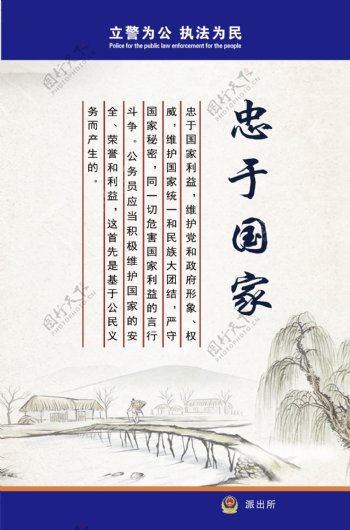 立警为公 执法为民
Police for the public law enforcement for the people
忠于国家
忠于国家利益，维护党和政府形象、权
威，维护国家统一和民族大团结，严守
国家秘密，同一切危害国家利益的言行
斗争。公务员应当积极维护国家的安
全、荣誉和利益，这首先是基于公民义
务而产生的。
派出所